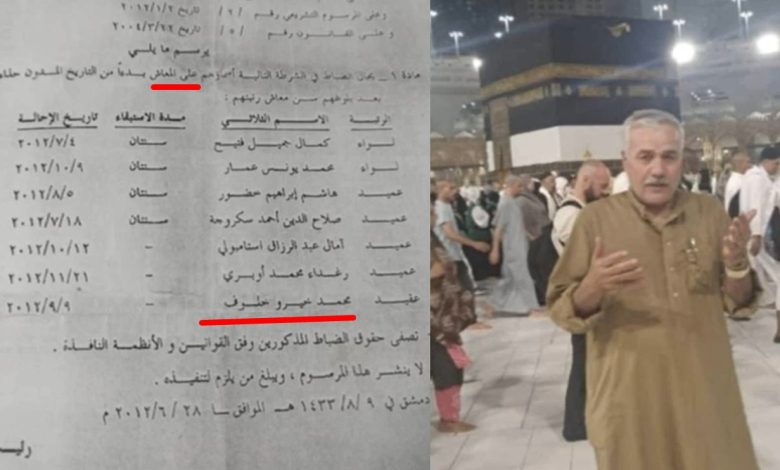 وعلى المرسوم التشريعي رقم /٢/ تاريخ ٢٠١٢/١/٢
وعلى القانون رقم /٥/ تاريخ ٢٠٠٤/٣/٢٢
يرسم ما يلي
مادة ١ــ يحال الضباط في الشرطة التالية أسماؤهم على المعاش بدءاً من التاريخ المدون
بعد بلوغهم سن معاش رتبتهم :
الرتبة الاسم الثلاثي مدة الاستيفاء تاريخ الإحالة
لواء كمال جميل فتيح سنتان ٢٠١٢/٧/٤
لواء محمد يونس عمار سنتان ٢٠١٢/١٠/٩
عميد هاشم إبراهيم خضور سنتان ٢٠١٢/٨/٥
عميد صلاح الدين أحمد سكروجة سنتان ٢٠١٢/٧/١٨
عميد آمال عبد الرزاق استامبولي - ٢٠١٢/١٠/١٢
عميد رغداء محمد أوبري - ٢٠١٢/١١/٢١
عقيد محمد خيرو خلوف - ٢٠١٢/٩/٩
تصفى حقوق الضباط المذكورين وفق القوانين و الأنظمة النافذة .
لا ينشر هذا المرسوم ، ويبلغ من يلزم لتنفيذه .
دمشق في ٩ /٨/ ١٤٣٣ هـ الموافق لـ ٢٨ /٦/ ٢٠١٢ م